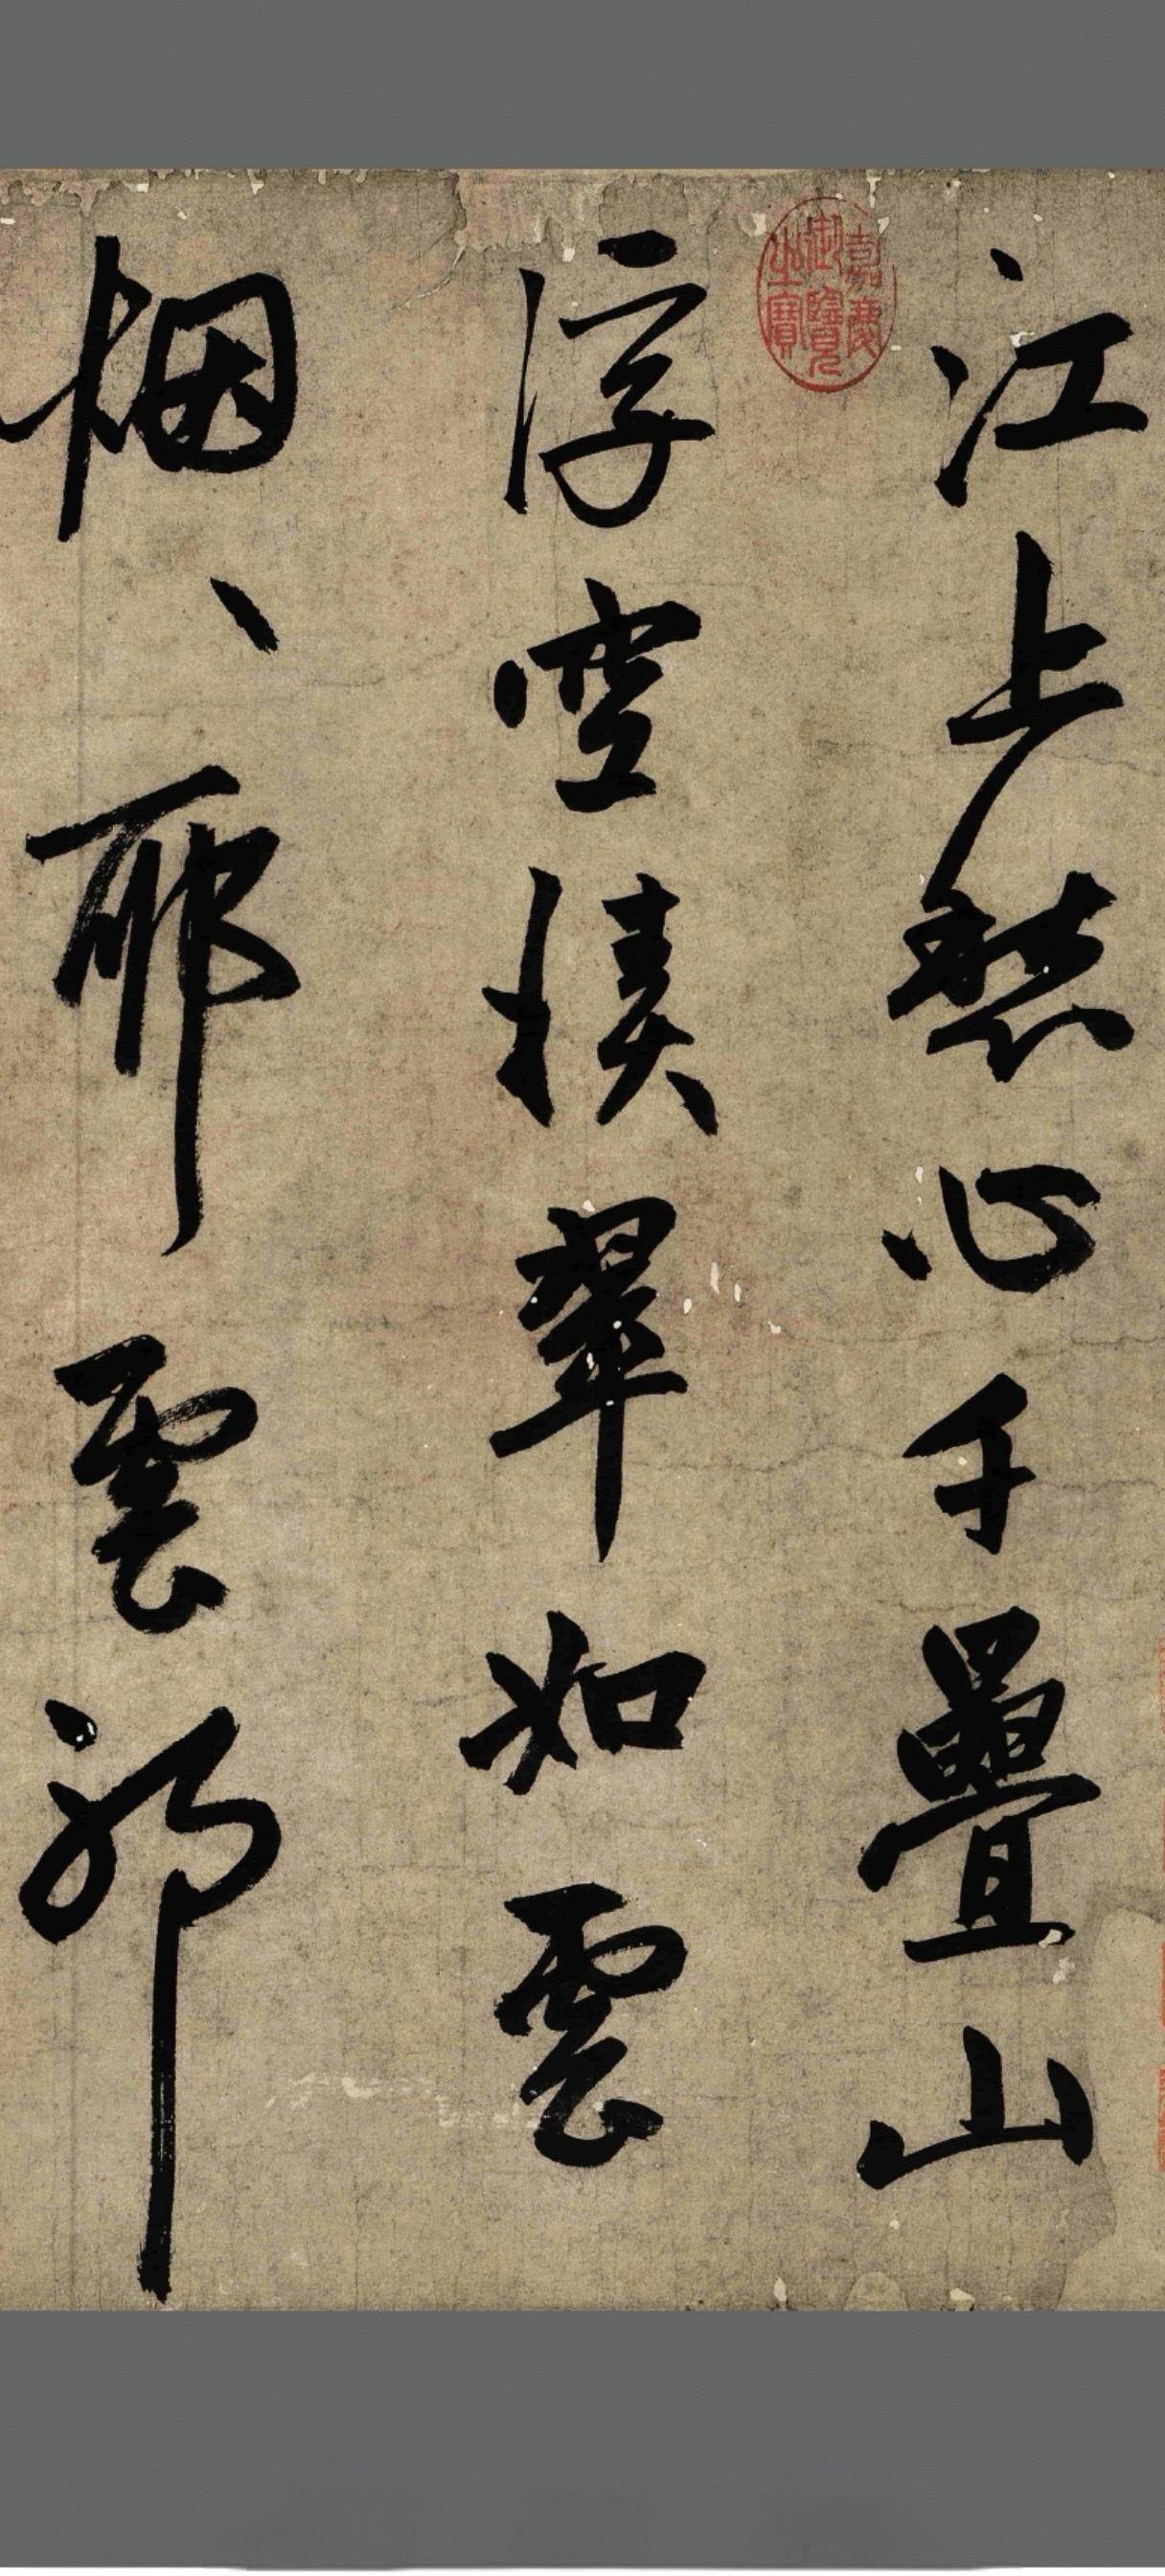 江上愁心千疊山
浮空積翠如雲
烟、耶雲耶
嘉慶
御覽
之寶